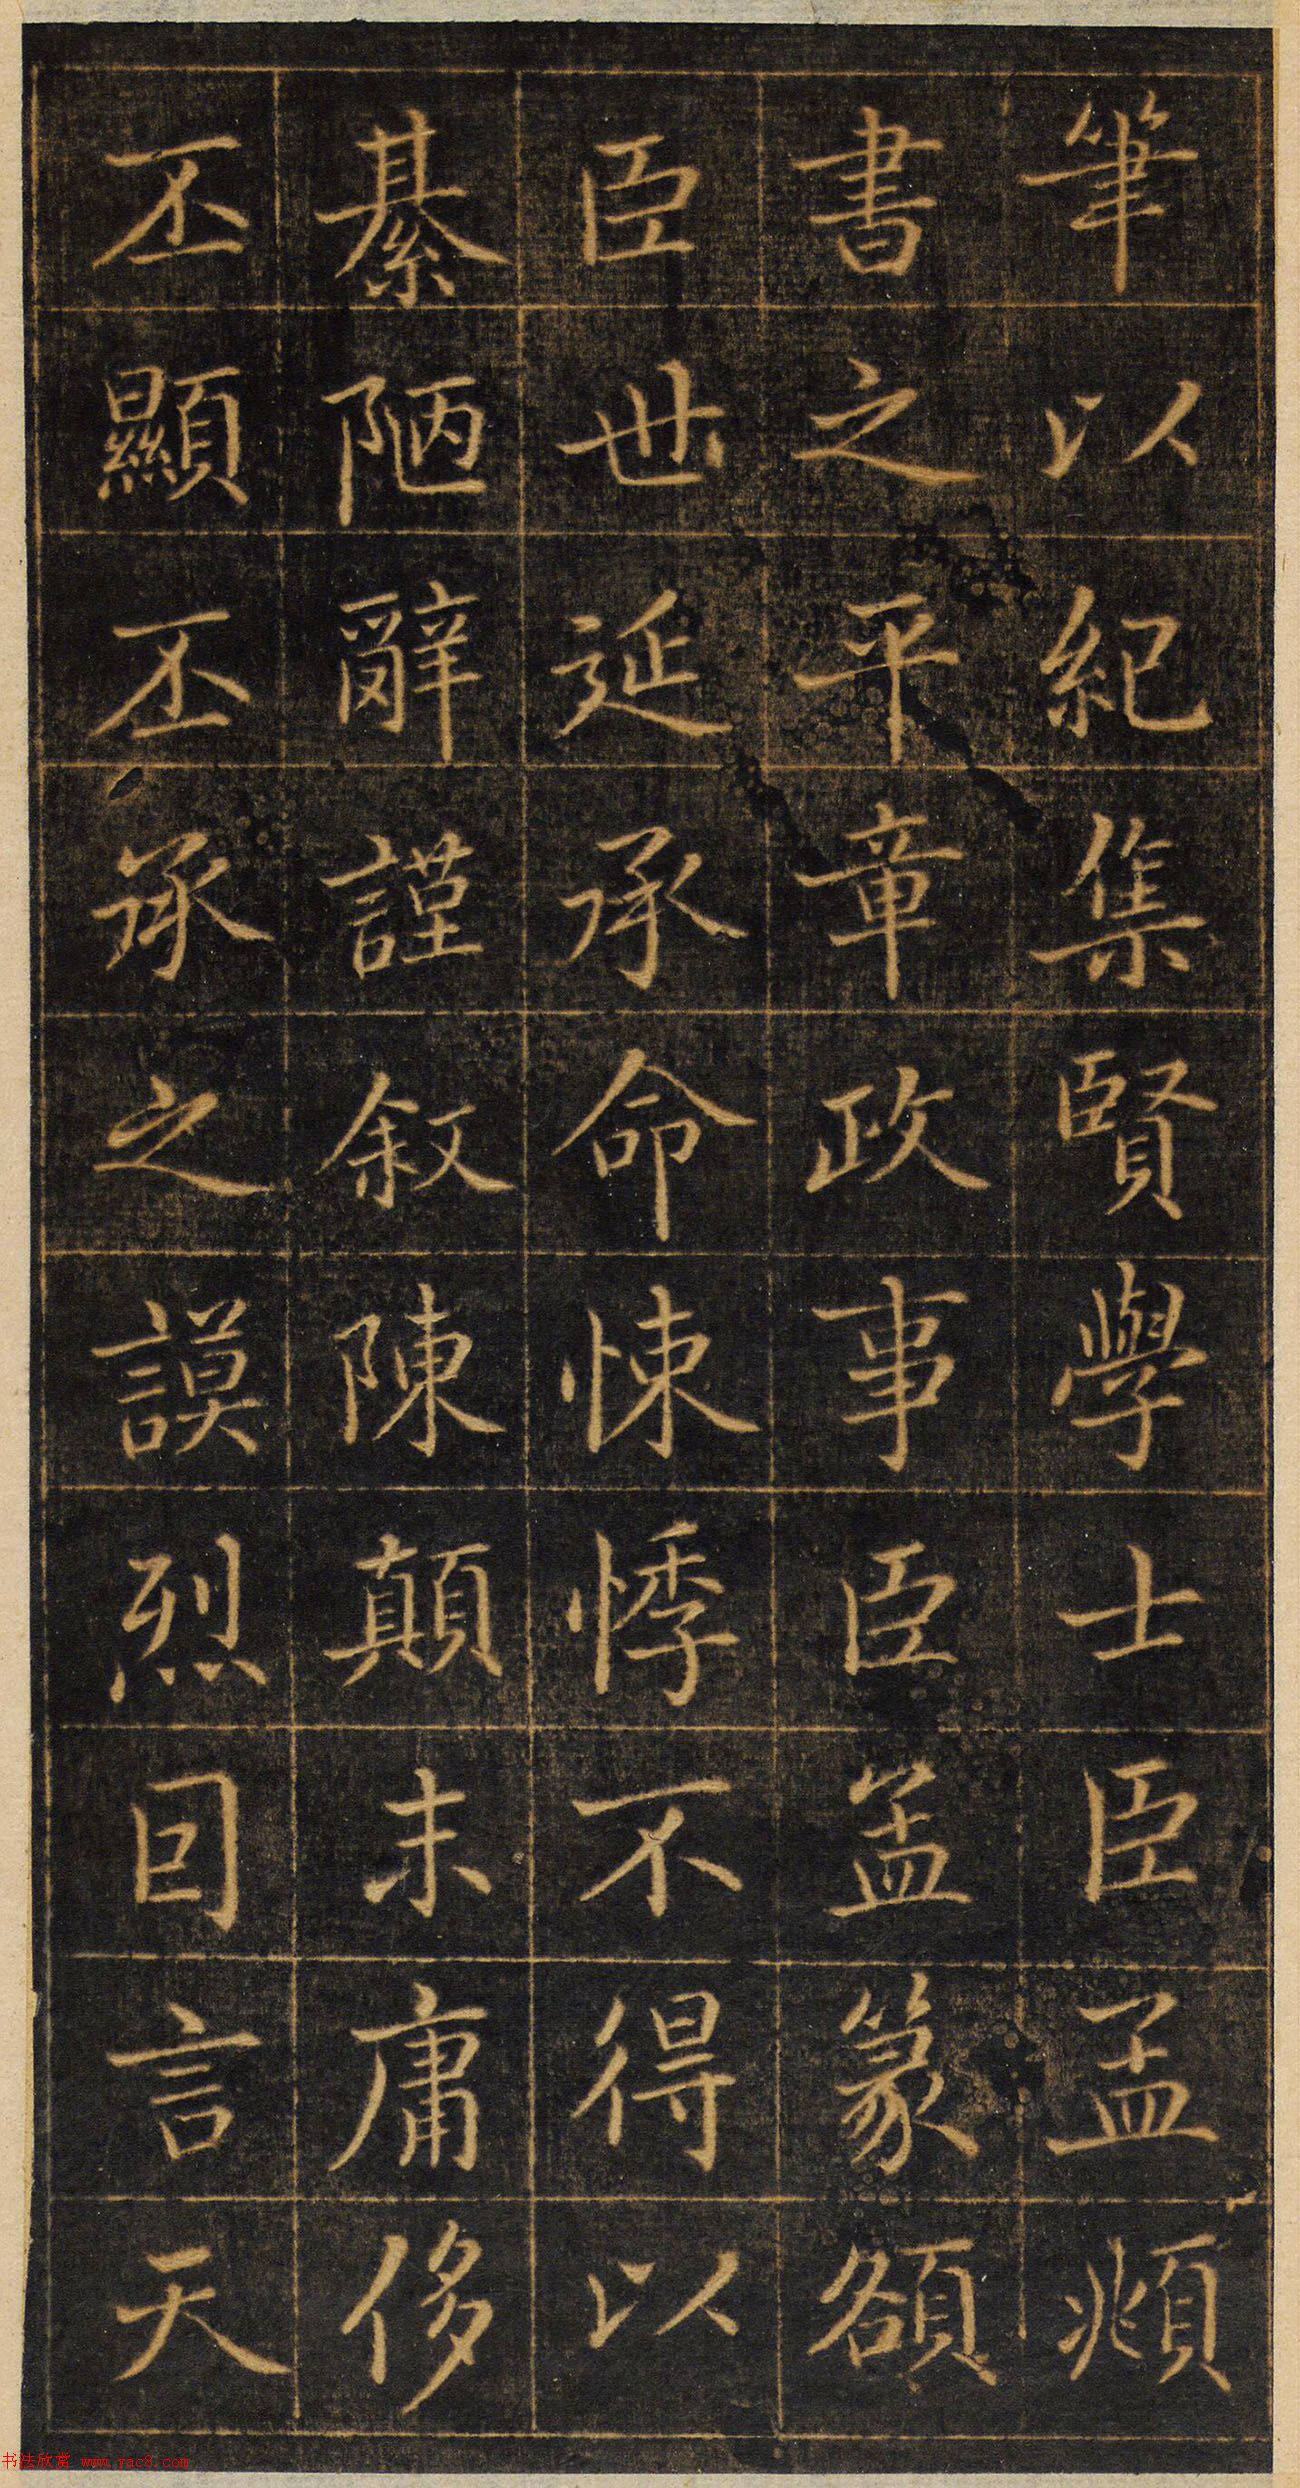 筆以紀集賢學士臣孟頫
書之平章政事臣孟篆額
臣世延承命悚悸不得以
綦陋辭謹敘陳顛末庸侈
丕顯丕承之謨烈囙言天
书法欣赏 www.yac8.com